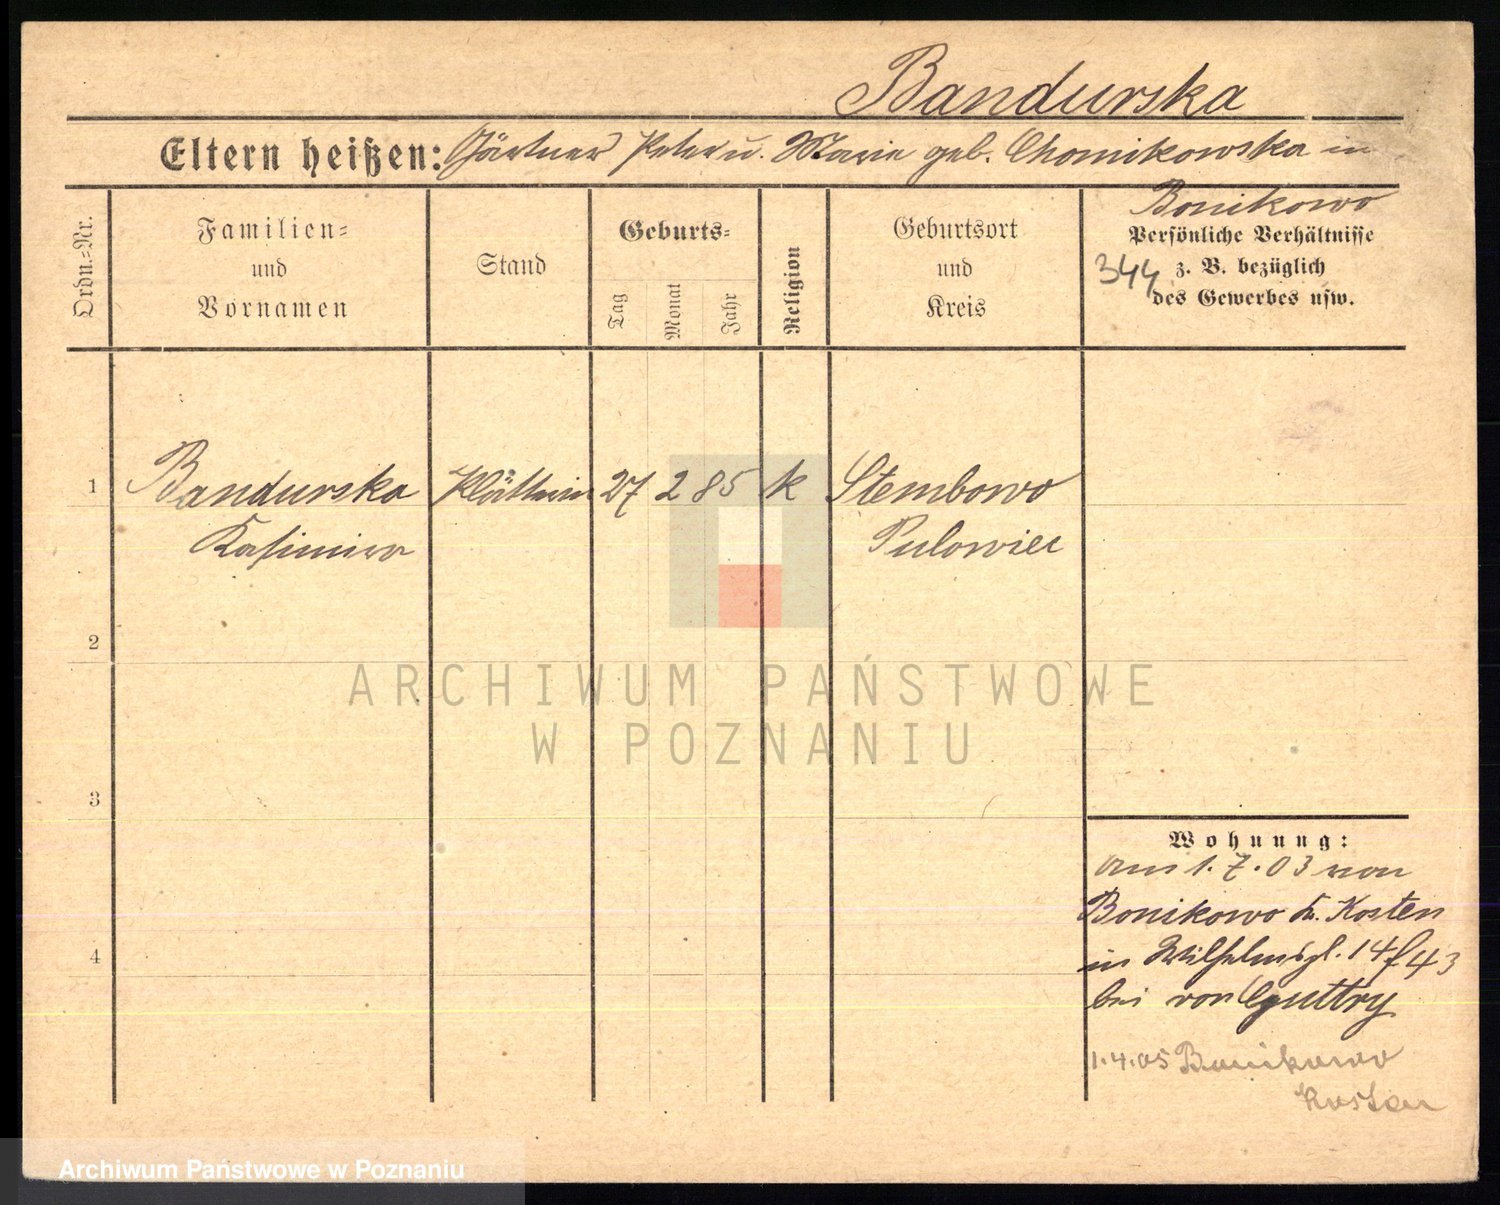 Bandurska
Eltern heißen: Gärtner Peter u. Marie geb. Chomikowska in
Bonikowo
Ordn.=Nr.
Familien=
und
Vornamen
Stand
Geburts=
Tag
Monat
Jahr
Religion
Geburtsort
und
Kreis
Persönliche Verhältnisse
344 z. B. bezüglich
des Gewerbes usw.
1 Bandurska Plätterin 27 2 85 k Stembowo
Kasimira
2
3
4
Wohnung:
am 1.7.03 von
Bonikowo Kr. Kosten
in Wilhelmspl. 14
bei von Guttry
1.4.05 Bonikowo
Kosten
ARCHIWUM PAŃSTWOWE
W POZNANIU
Archiwum Państwowe w Poznaniu